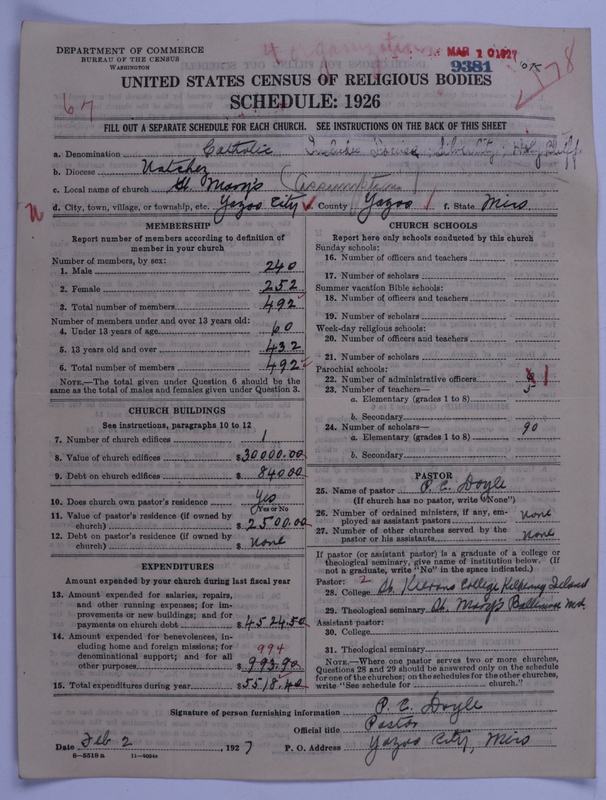 DEPARTMENT OF COMMERCE
BUREAU OF THE CENSUS
WASHINGTON
4 organizations
MAR 10 1927
9381
67
78
UNITED STATES CENSUS OF RELIGIOUS BODIES
SCHEDULE: 1926
FILL OUT A SEPARATE SCHEDULE FOR EACH CHURCH. SEE INSTRUCTIONS ON THE BACK OF THIS SHEET
a. Denomination Catholic
b. Diocese Natchez
c. Local name of church St Mary's (Assumption)
d. City, town, village, or township, etc. Yazoo City e. County Yazoo f. State Miss.
MEMBERSHIP
Report number of members according to definition of member in your church
Number of members, by sex:
1. Male 240
2. Female 252
3. Total number of members 492
Number of members under and over 13 years old:
4. Under 13 years of age 60
5. 13 years old and over 432
6. Total number of members 492
NOTE.—The total given under Question 6 should be the same as the total of males and females given under Question 3.
CHURCH BUILDINGS
See instructions, paragraphs 10 to 12
7. Number of church edifices 1
8. Value of church edifices $30000.00
9. Debt on church edifices $ 84000
10. Does church own pastor's residence Yes
(Yes or No)
11. Value of pastor's residence (if owned by church) $ 2500.00
12. Debt on pastor's residence (if owned by church) $ none
EXPENDITURES
Amount expended by your church during last fiscal year
13. Amount expended for salaries, repairs, and other running expenses; for improvements or new buildings; and for payments on church debt $4524.50
14. Amount expended for benevolences, including home and foreign missions; for denominational support; and for all other purposes 994 $ 993.90
15. Total expenditures during year $5518.40
CHURCH SCHOOLS
Report here only schools conducted by this church
Sunday schools:
16. Number of officers and teachers
17. Number of scholars
Summer vacation Bible schools:
18. Number of officers and teachers
19. Number of scholars
Week-day religious schools:
20. Number of officers and teachers
21. Number of scholars
Parochial schools:
22. Number of administrative officers 1
23. Number of teachers— 5
a. Elementary (grades 1 to 8)
b. Secondary
24. Number of scholars— 90
a. Elementary (grades 1 to 8)
b. Secondary
PASTOR
25. Name of pastor P. C. Doyle
(If church has no pastor, write "None")
26. Number of ordained ministers, if any, employed as assistant pastors none
27. Number of other churches served by the pastor or his assistants none
If pastor (or assistant pastor) is a graduate of a college or theological seminary, give name of institution below. (If not a graduate, write "No" in the space indicated.)
Pastor: 2
28. College St. Kierans College Kilkenny Ireland
29. Theological seminary St. Mary's Baltimore Md.
Assistant pastor:
30. College
31. Theological seminary
NOTE.—Where one pastor serves two or more churches, Questions 28 and 29 should be answered only on the schedule for one of the churches; on the schedules for the other churches, write "See schedule for church."
Signature of person furnishing information P. C. Doyle
Official title Pastor
Date Feb 2, 1927 P. O. Address Yazoo City, Miss
8—5518 a 11—4034a